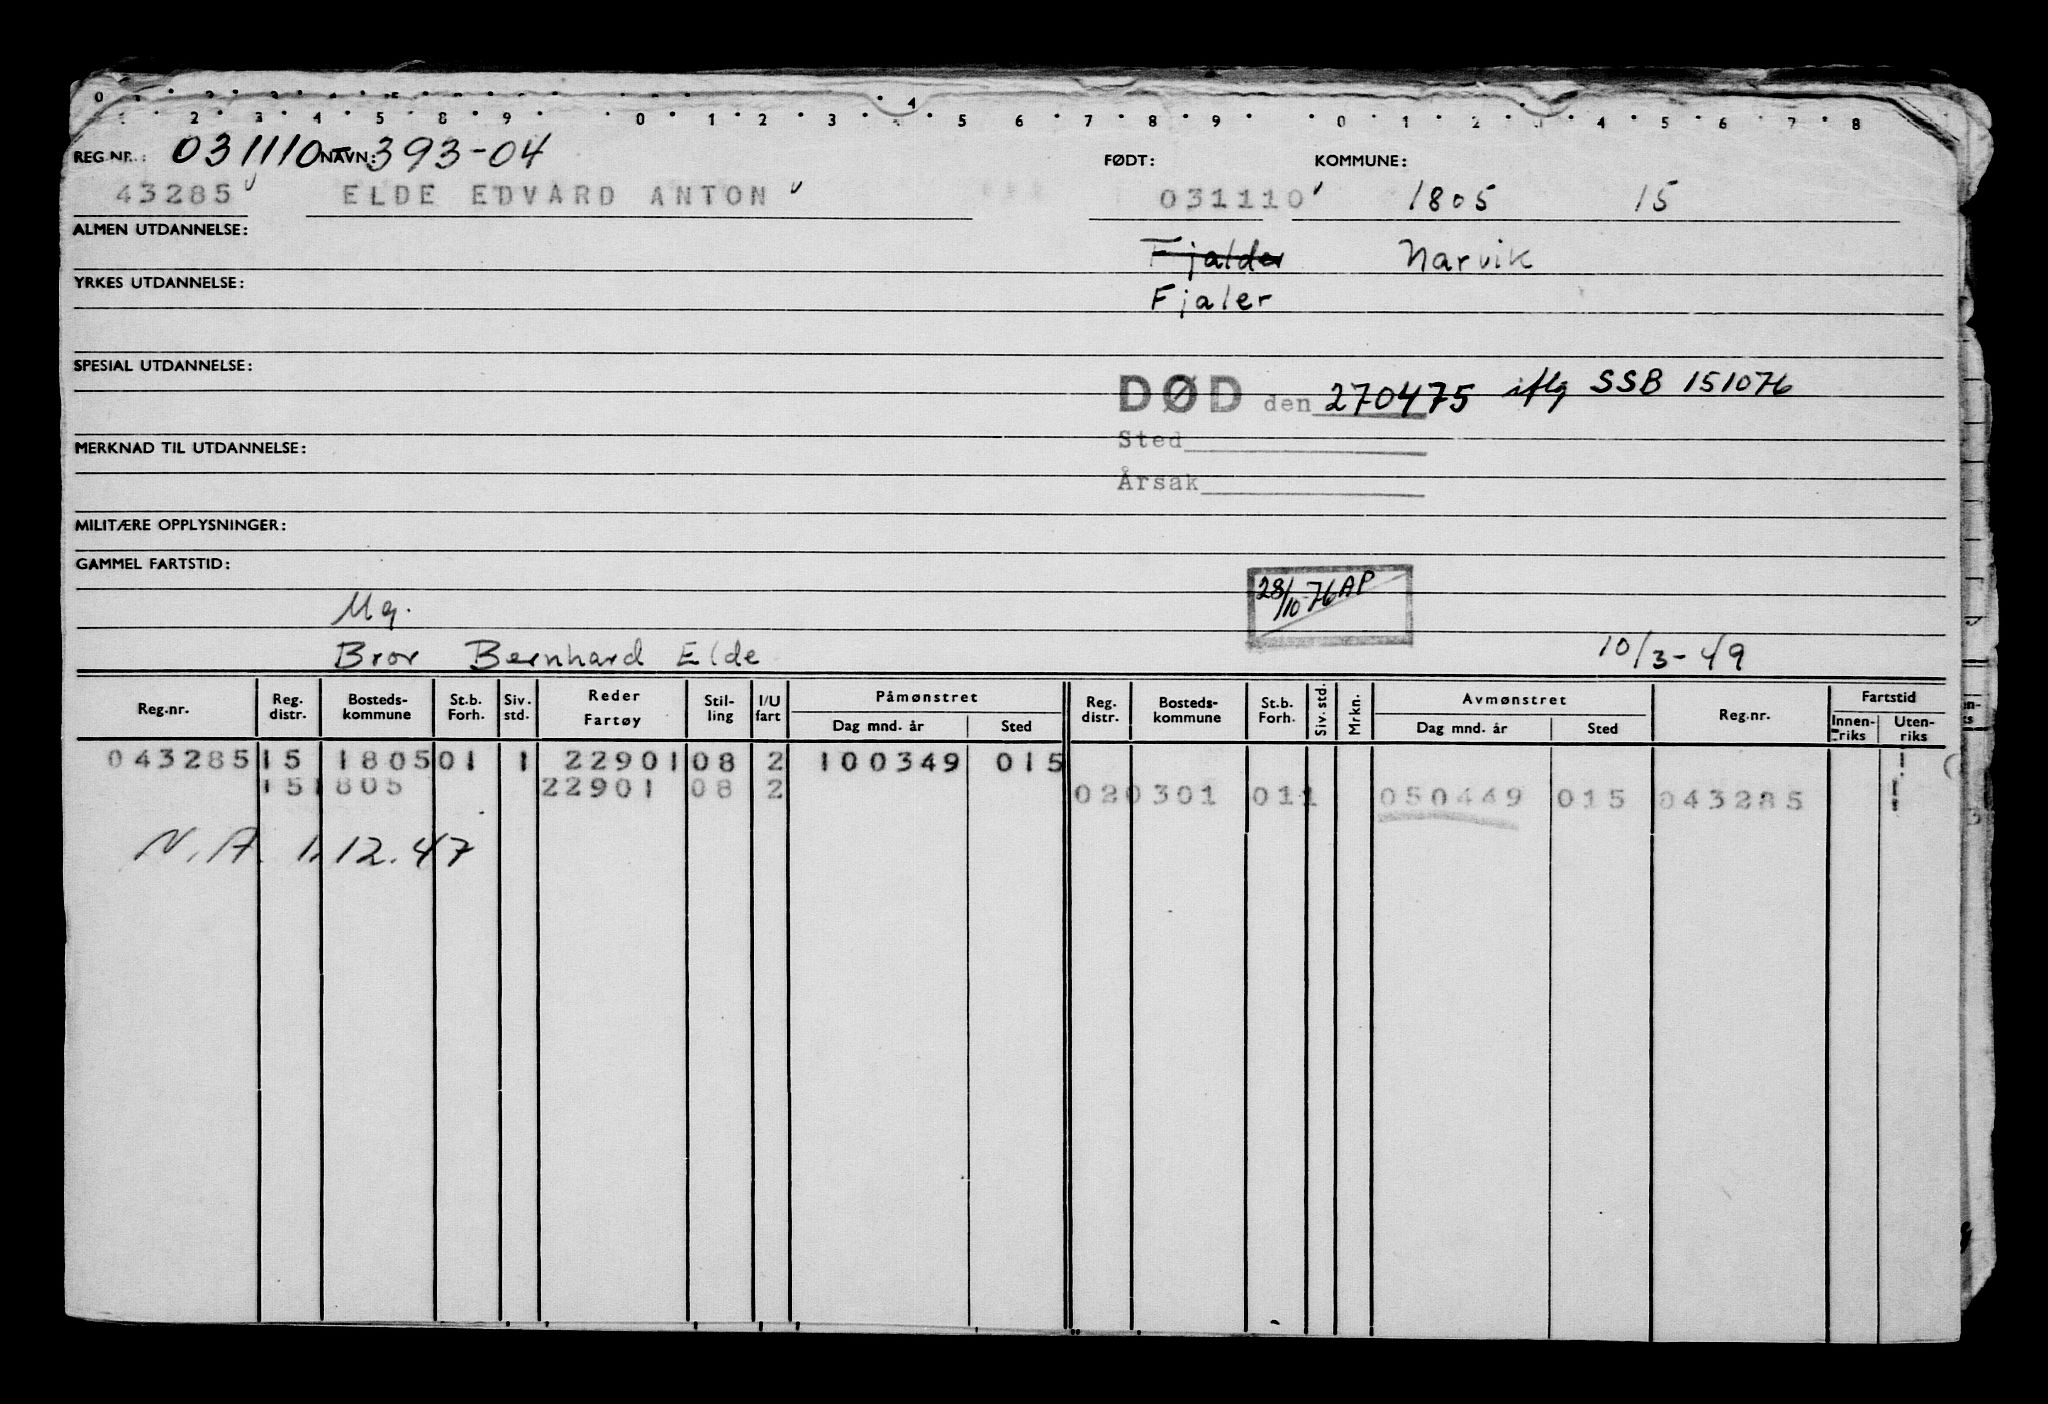 REG.NR.: 031110 NAVN: 393-04 FØDT: KOMMUNE:
43285 ELDE EDVARD ANTON 031110 1805 15
ALMEN UTDANNELSE: Fjalder Narvik
YRKES UTDANNELSE: Fjaler
SPESIAL UTDANNELSE:
DØD den 270475 iflg SSB 151076
Sted
MERKNAD TIL UTDANNELSE:
Årsak
MILITÆRE OPPLYSNINGER:
GAMMEL FARTSTID:
28/10-76 AP
Ug.
Bror Bernhard Elde 10/3-49
Reg.nr. Reg. distr. Bosteds-kommune St.b. Forh. Siv. std. Reder Fartøy Stil-ling I/U fart Påmønstret Dag mnd. år Sted Reg. distr. Bosteds-kommune St.b. Forh. Siv. std. Mrkn. Avmønstret Dag mnd. år Sted Reg.nr. Fartstid Innen-riks Uten-riks
043285 15 1805 01 1 22901 08 2 100349 015 1
15 1805 22901 08 2 020301 011 050449 015 043285 1
N.A. 1.12.47